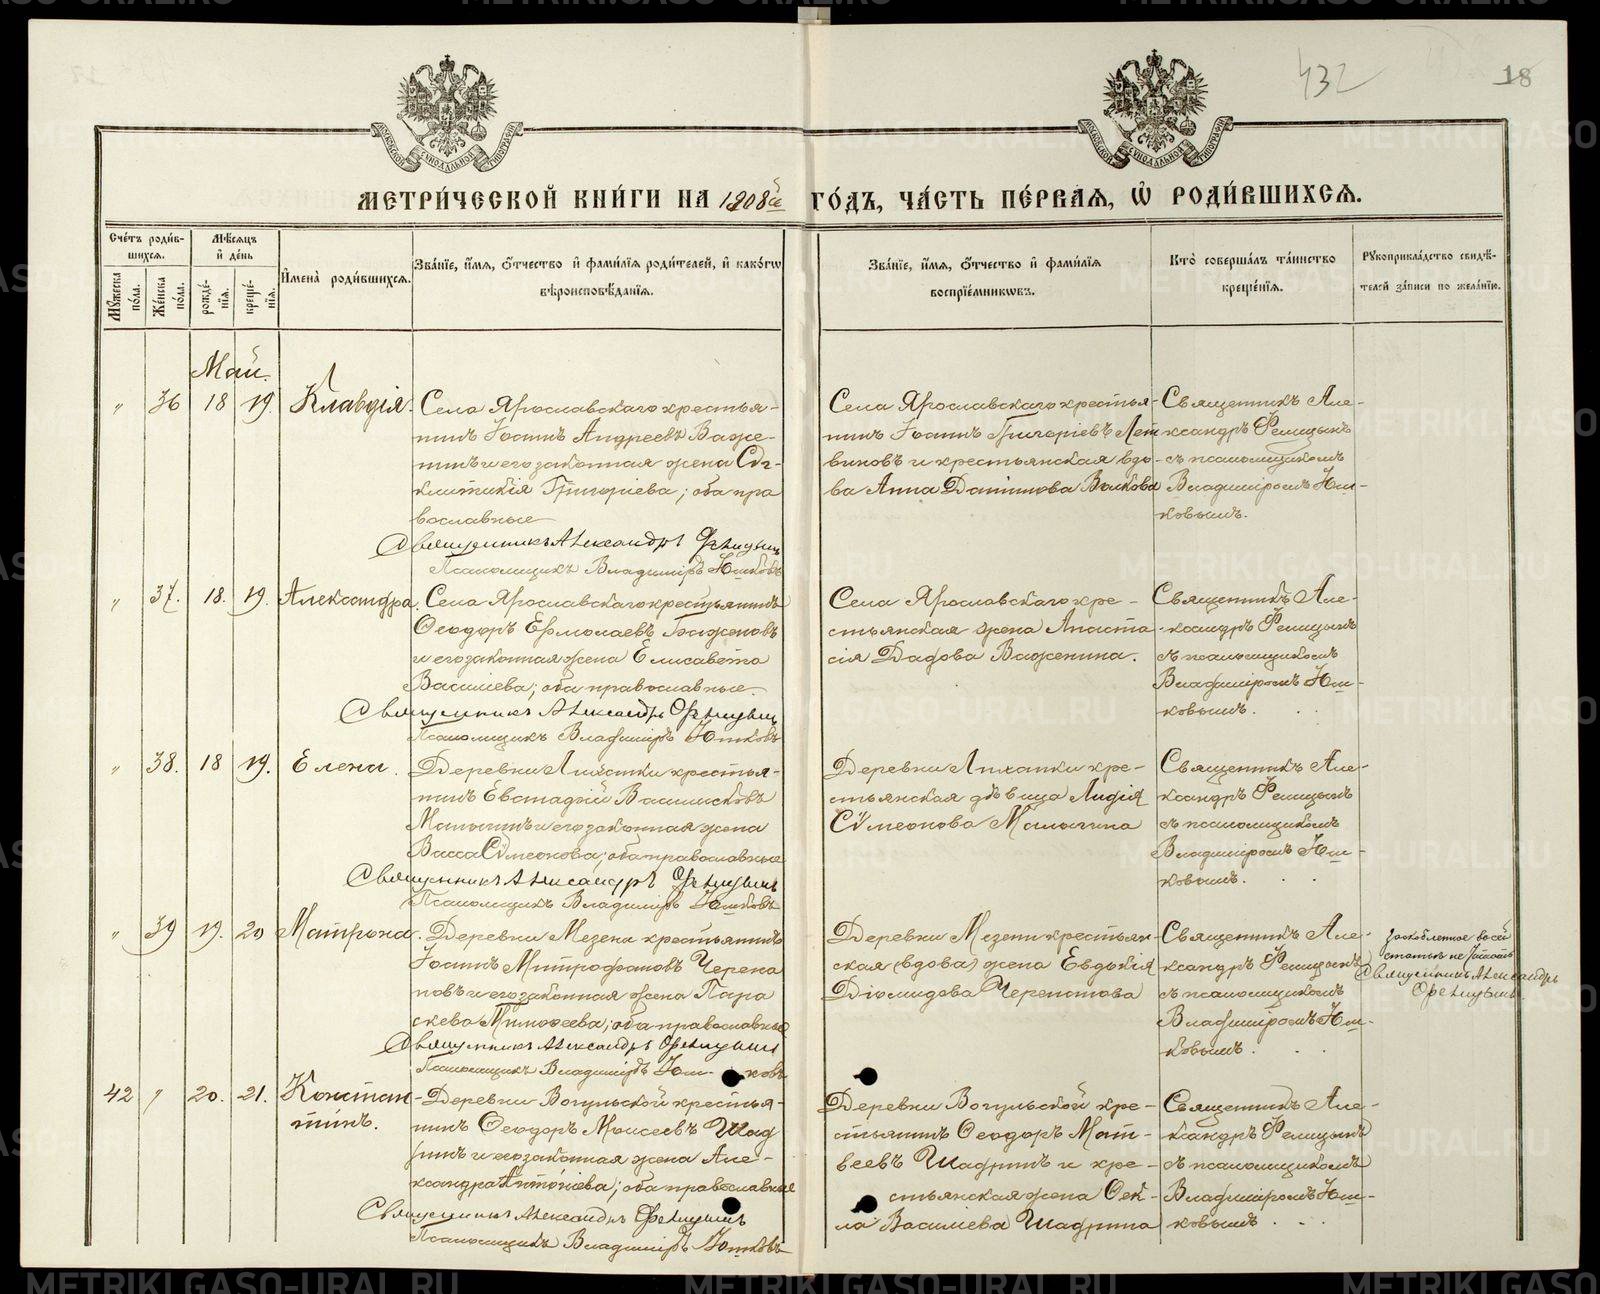 432
18
МЕТРИ́ЧЕСКОЙ КНИ́ГИ НА 1908й ГО́ДЪ, ЧА́СТЬ ПЕ́РВАЯ, Ѡ РОДИ́ВШИХСЯ.
Сче́тъ роди́в-
шихся.
Мѣ́сяцъ
и҆ де́нь
Мꙋ́жеска по́ла.
Же́нска по́ла.
рожде́-
нїя.
креще́-
нїя.
И҆мена̀ роди́вшихся.
Зва́нїе, и҆́мя, ѻ҆́тчество и҆ фами́лїя роди́телей, и҆ како́гѡ
вѣроисповѣ́данїя.
Зва́нїе, и҆́мя, ѻ҆́тчество и҆ фами́лїя
воспрїе́мникѡвъ.
Кто̀ соверша́лъ та́инство
креще́нїя.
Рꙋкоприкла́дство свидѣ́-
телей за́писи по жела́нїю.
Май.
" 36 18 19 Клавдія.
Села Ярославскаго крестья-
нинъ Іоаннъ Андреевъ Важе-
нинъ и его законная жена Сѵг-
клитикія Григоріева; оба пра
вославные
Священникъ Александръ Фелицынъ
Псаломщикъ Владиміръ Юшковъ
Села Ярославскаго крестья-
нинъ Іоаннъ Григоріевъ Лет
виновъ и крестьянская вдо-
ва Анна Волкова
Священникъ Але-
ксандръ Фелицынъ
съ псаломщикомъ
Владиміромъ Юш-
ковымъ.
" 37. 18. 19. Александра.
Села Ярославскаго крестьянинъ
Ѳеодоръ Ермолаевъ Баженовъ
и его законная жена Елисавета
Васильева; оба православные.
Священникъ Александръ Фелицынъ
Псаломщикъ Владиміръ Юшковъ
Села Ярославскаго кре-
стьянская жена Анаста
сія Важенина.
Священникъ Але-
ксандръ Фелицынъ
съ псаломщикомъ
Владиміромъ Юш-
ковымъ.
" 38. 18 19. Елена.
Деревни крестья-
нинъ Васильевъ
Малыгинъ и его законная жена
Васса Сѵмеонова; оба православные
Священникъ Александръ Фелицынъ
Псаломщикъ Владиміръ Юшковъ
Деревни кре-
стьянская дѣвица Лидія
Сѵмеонова Малыгина
Священникъ Але-
ксандръ Фелицынъ
съ псаломщикомъ
Владиміромъ Юш-
ковымъ.
" 39 19. 20 Матрона.
Деревни Мезени крестьянинъ
Іоаннъ Митрофановъ Черепа
новъ и его законная жена Пара
скева Тимоѳеева; оба православные
Священникъ Александръ Фелицынъ
Псаломщикъ Владиміръ Юш-ковъ
Деревни Мезени крестьян-
ская (вдова) жена Евдокія
Діомидова Черепанова
Священникъ Але-
ксандръ Фелицынъ
съ псаломщикомъ
Владиміромъ Юш-
ковымъ.
заскобленное во сей
статьѣ не читать
Священникъ Александръ
Фелицынъ.
42 " 20. 21. Констан-
тинъ.
Деревни Вогульской крестья-
нинъ Ѳеодоръ Моисеевъ Шад
ринъ и его законная жена Але-
ксандра Антоніева; оба православные
Священникъ Александръ Фелицынъ
Псаломщикъ Владиміръ Юшковъ
Деревни Вогульской кре-
стьянинъ Ѳеодоръ Мат-
веевъ Шадринъ и кре-
стьянская жена Ѳек-
ла Васильева Шадрина
Священникъ Але-
ксандръ Фелицынъ
съ псаломщикомъ
Владиміромъ Юш-
ковымъ.
METRIKI.GASO-URAL.RU